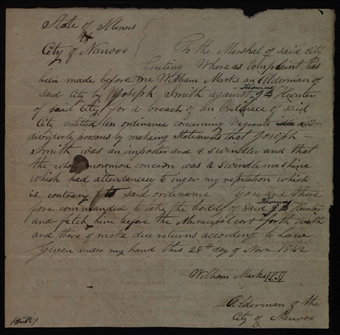 State of Illinois
City of Nauvoo
To the Marshal of said City
Greeting Whereas complaint has
been made before me William Marks an Alderman of
said City by Joseph Smith against Thomas J Hunter
of said City for a breach of an Ordinance of said
City entitled an ordinance concerning vagrants and
disorderly persons by making statements that Joseph
Smith was an imposter and a swindler and that
the whole mormon concern was a swindle machine
which had attendency to injur my reputation which
is contrary to said ordinance you are there
fore commanded to take the body of said Thomas J Hunter
and fetch him before the Municipal cort forth with
and there make due returns according to Law
Given under my hand this 28th day of Nov 1842
William Marks
Alderman of the
City of Nauvoo